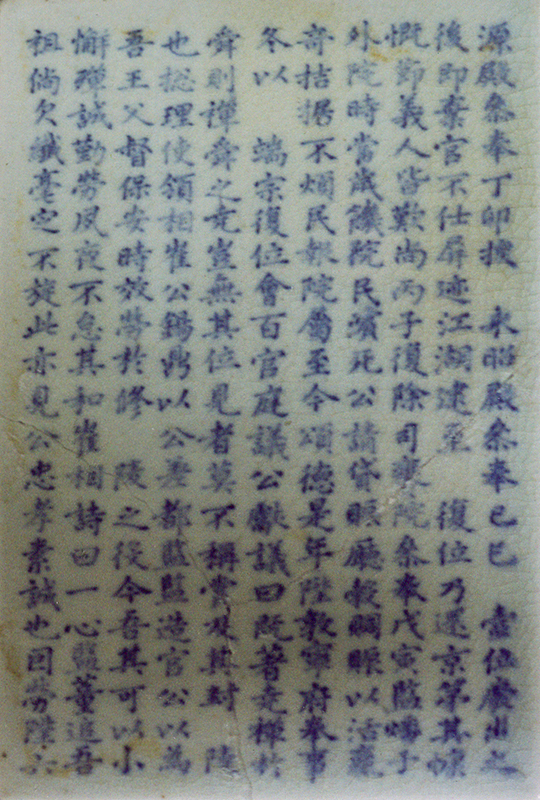 源殿參奉丁卯授 永昭殿參奉己巳 當位廢出之
後卽棄官不仕屛迹江湖逮至 復位乃還京第其慷
慨節義人皆歎尙丙子復除司饔院參奉戊寅監燔于
外院時當歲饑院民濱死公請貸賑廳穀賙賑以活竟
奇拮据不煩民報院屬至今頌德是年陞敦寧府奉事
冬以 端宗復位會百官庭議公獻議曰旣著堯禪於
舜則禪舜之堯豈無其位見者莫不稱賞及其封 陵
也摠理使領相崔公錫鼎以公差都監監造官公以爲
吾王父督保安時效勞於修 陵之役今吾其可以小
懈殫誠勤勞夙夜不怠其和崔相詩曰一心監董追吾
祖倘欠纖毫定不旋此亦見公忠孝素誠也因勞陞六